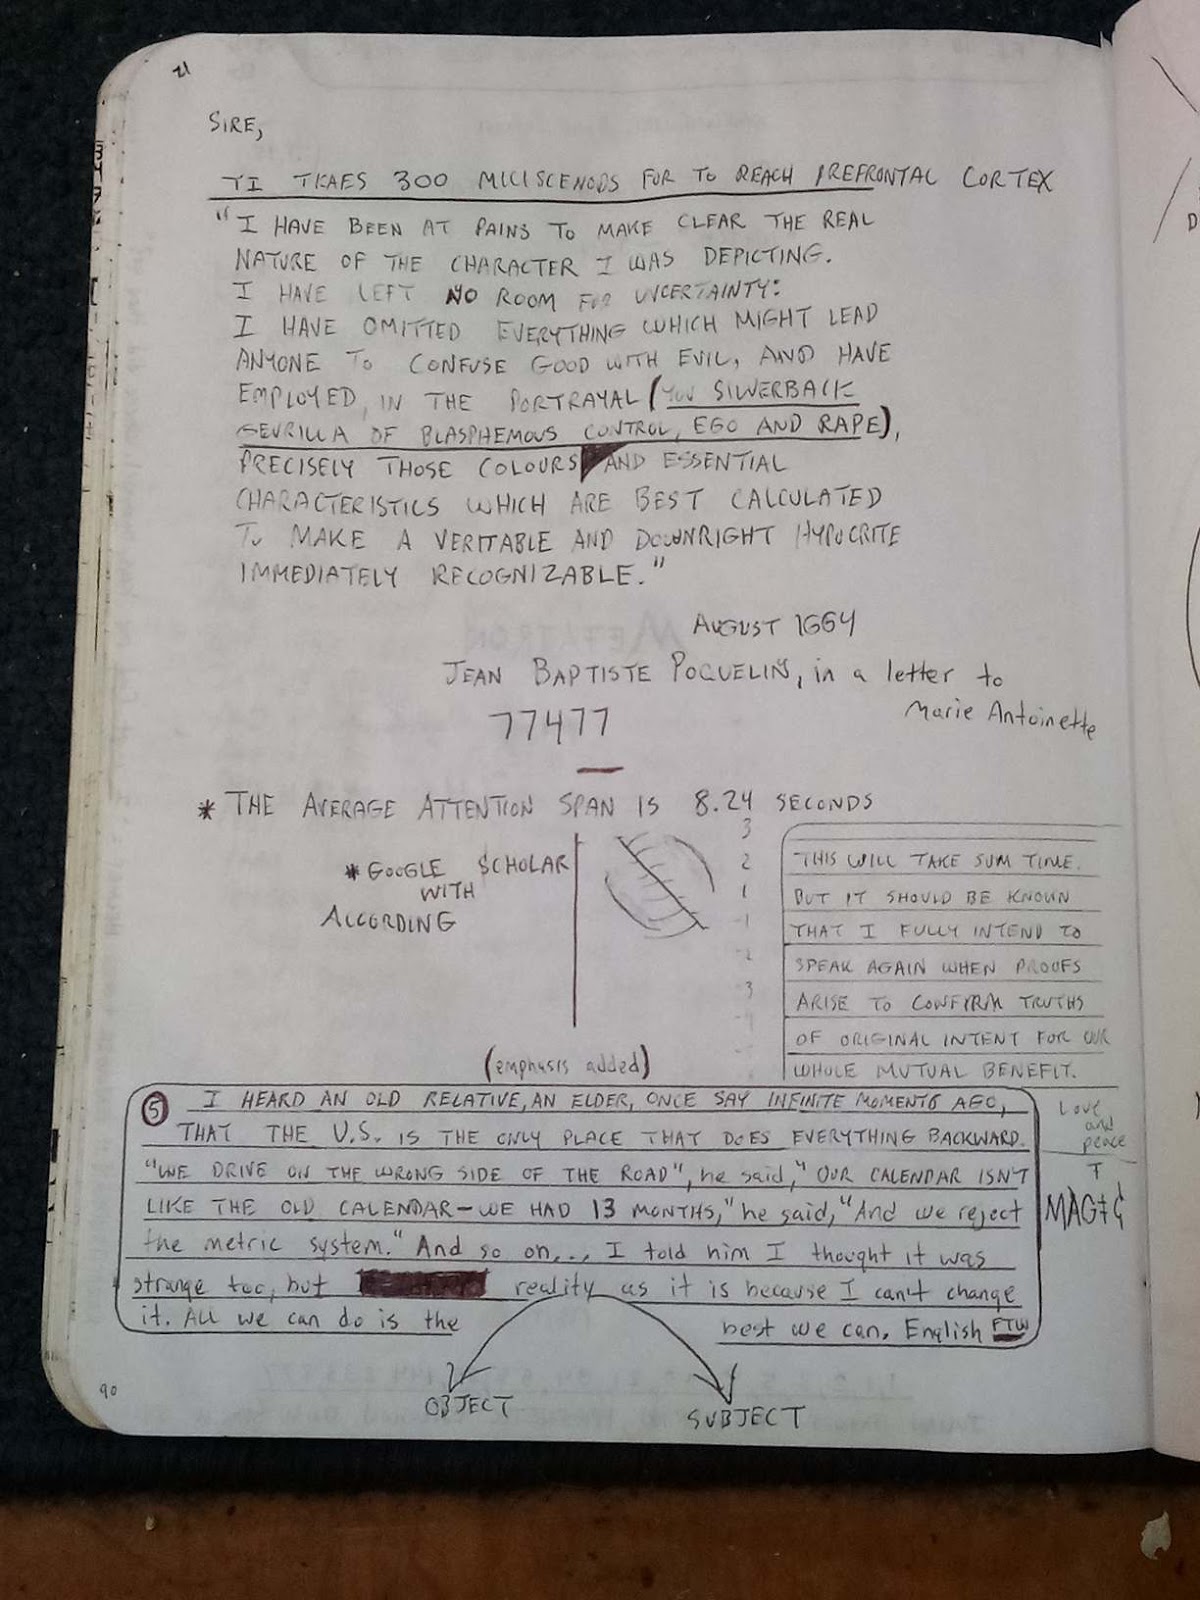 21
SIRE,
TI TKAES 300 MILISCENODS FUR TO REACH PREFRONTAL CORTEX
"I HAVE BEEN AT PAINS TO MAKE CLEAR THE REAL
NATURE OF THE CHARACTER I WAS DEPICTING.
I HAVE LEFT NO ROOM FOR UVCERTAINTY:
I HAVE OMITTED EVERYTHING WHICH MIGHT LEAD
ANYONE TO CONFUSE GOOD WITH EVIL, AND HAVE
EMPLOYED, IN THE PORTRAYAL (YOU SILVERBACK
GEVRILLA OF BLASPHEMOUS CONTROL, EGO AND RAPE),
PRECISELY THOSE COLOURS AND ESSENTIAL
CHARACTERISTICS WHICH ARE BEST CALCULATED
TO MAKE A VERITABLE AND DOWNRIGHT HYPOCRITE
IMMEDIATELY RECOGNIZABLE."
AUGUST 1664
JEAN BAPTISTE POQUELIN, in a letter to
Marie Antoinette
77477
* THE AVERAGE ATTENTION SPAN IS 8.24 SECONDS
* GOOGLE SCHOLAR
WITH
ACCORDING
3
2
1
-1
-2
3
THIS WILL TAKE SUM TIME.
BUT IT SHOULD BE KNOWN
THAT I FULLY INTEND TO
SPEAK AGAIN WHEN PROOFS
ARISE TO CONFIRM TRUTHS
OF ORIGINAL INTENT FOR OUR
WHOLE MUTUAL BENEFIT.
(emphasis added)
5 I HEARD AN OLD RELATIVE, AN ELDER, ONCE SAY INFINITE MOMENTS AGO,
THAT THE U.S. IS THE ONLY PLACE THAT DOES EVERYTHING BACKWARD.
"WE DRIVE ON THE WRONG SIDE OF THE ROAD", he said, "OUR CALENDAR ISN'T
LIKE THE OLD CALENDAR - WE HAD 13 MONTHS," he said, "And we reject
the metric system." And so on... I told him I thought it was
strange too, but reality as it is because I can't change
it. All we can do is the best we can. English FTW
Love
and
peace
OBJECT
SUBJECT
90